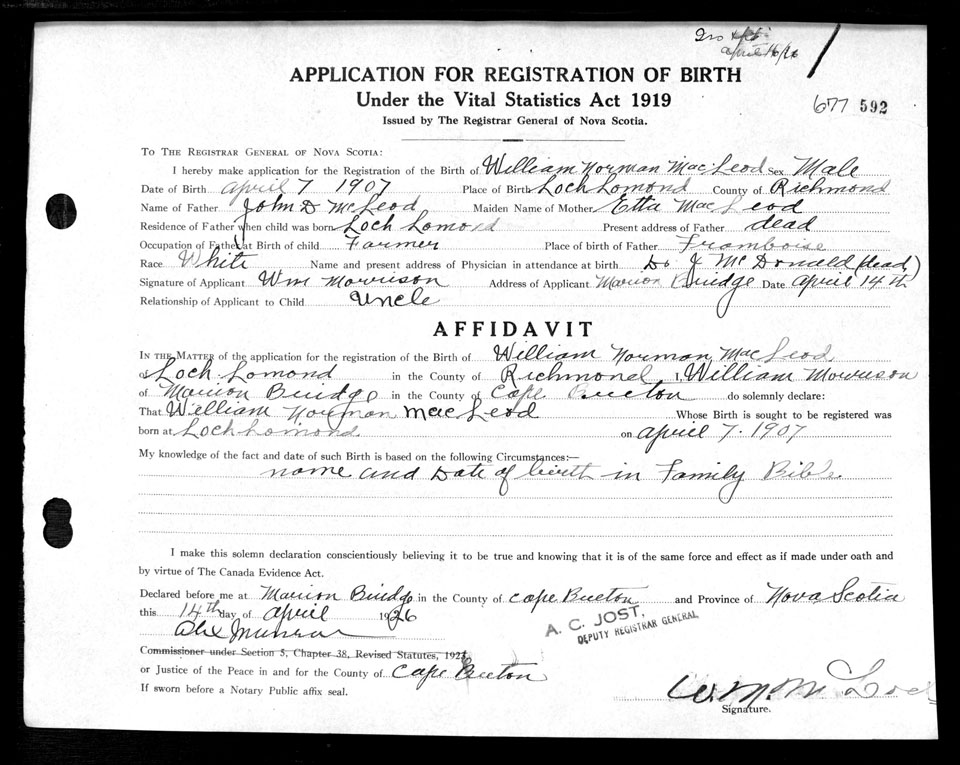 april 16/26
APPLICATION FOR REGISTRATION OF BIRTH
Under the Vital Statistics Act 1919
Issued by The Registrar General of Nova Scotia.
677 592
TO THE REGISTRAR GENERAL OF NOVA SCOTIA:
I hereby make application for the Registration of the Birth of William Norman MacLeod Sex Male
Date of Birth april 7 1907 Place of Birth Loch Lomond County of Richmond
Name of Father John D McLeod Maiden Name of Mother Etta MacLeod
Residence of Father when child was born Loch Lomond Present address of Father dead
Occupation of Father at Birth of child Farmer Place of birth of Father Framboise
Race White Name and present address of Physician in attendance at birth Dr J McDonald (dead)
Signature of Applicant Wm Morrison Address of Applicant Marion Bridge Date april 14th
Relationship of Applicant to Child Uncle
AFFIDAVIT
IN THE MATTER of the application for the registration of the Birth of William Norman MacLeod
of Loch Lomond in the County of Richmond I, William Morrison
of Marion Bridge in the County of Cape Breton do solemnly declare:
That William Norman MacLeod Whose Birth is sought to be registered was
born at Loch Lomond on april 7. 1907
My knowledge of the fact and date of such Birth is based on the following Circumstances:—
name and Date of birth in Family Bible
I make this solemn declaration conscientiously believing it to be true and knowing that it is of the same force and effect as if made under oath and
by virtue of The Canada Evidence Act.
Declared before me at Marion Bridge in the County of Cape Breton and Province of Nova Scotia
this 14th day of april 1926
A. C. JOST.
DEPUTY REGISTRAR GENERAL
Alex Munro
Commissioner under Section 5, Chapter 38, Revised Statutes, 1923,
or Justice of the Peace in and for the County of Cape Breton
If sworn before a Notary Public affix seal.
W. N. McLeod
Signature.